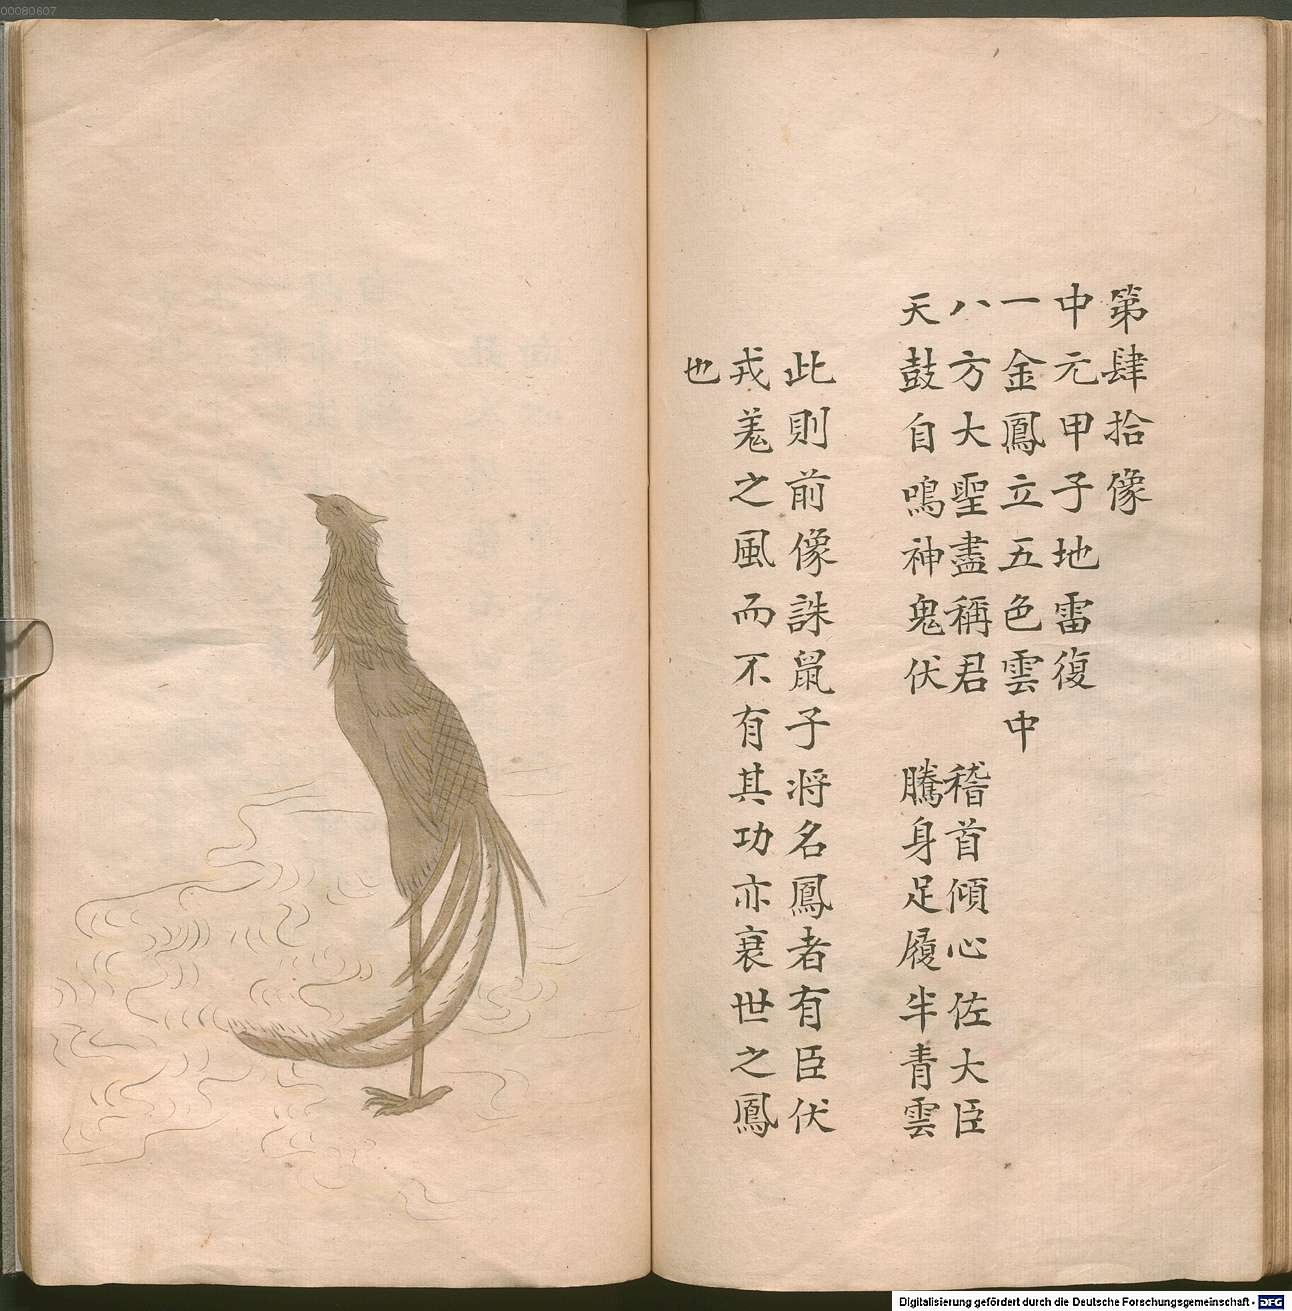 00080607
第肆拾像
中元甲子地雷復
一金鳳立五色雲中
八方大聖盡稱君 稽首傾心佐大臣
天鼓自鳴神鬼伏 騰身足履半青雲
此則前像誅鼠子将名鳳者有臣伏
戎羗之風而不有其功亦衰世之鳳
也
Digitalisierung gefördert durch die Deutsche Forschungsgemeinschaft - DFG